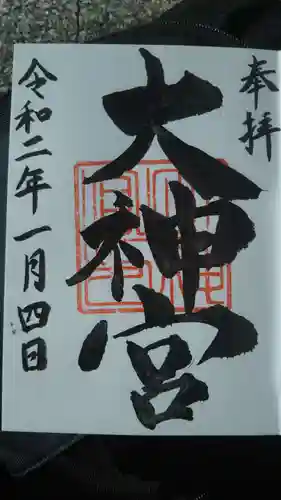 奉拝
大神宮
令和二年一月四日